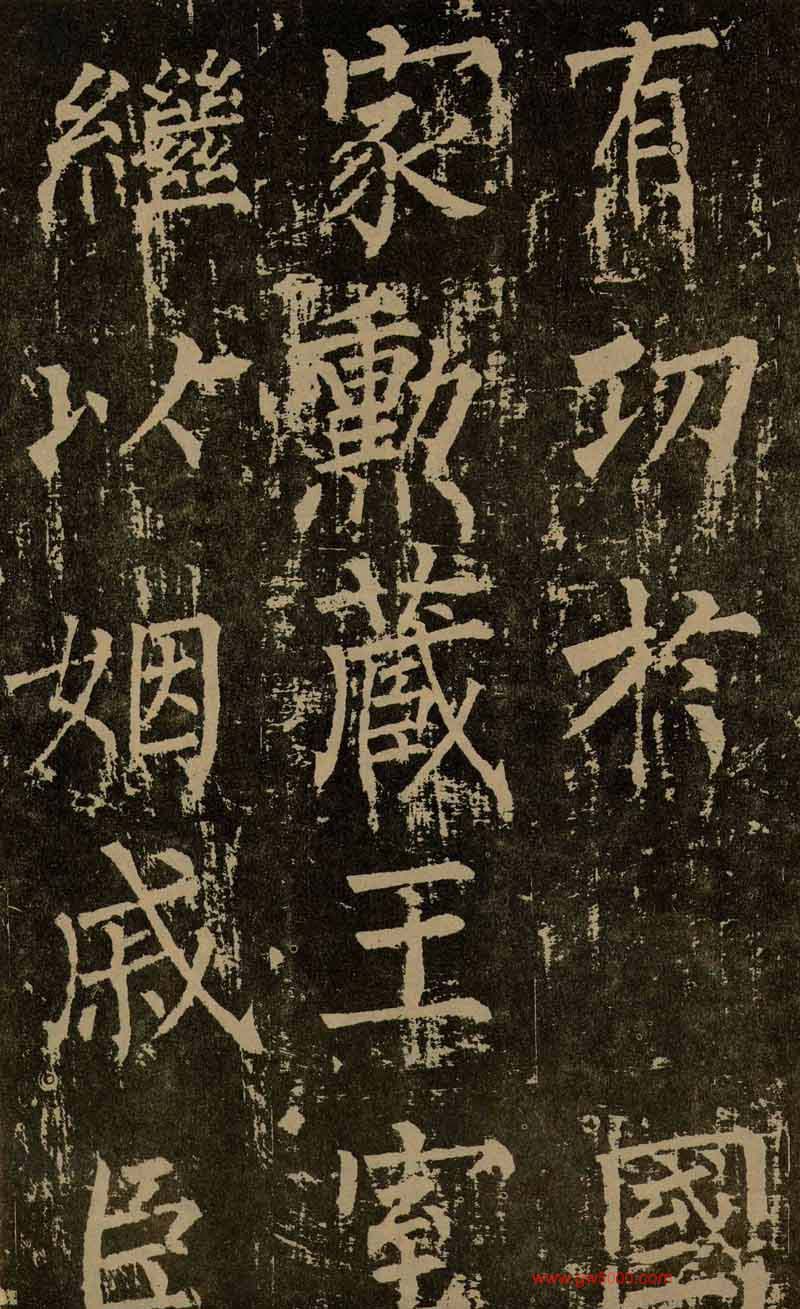 有功於國
家勲蔵王室
継以姻戚臣
www.gw5000.com